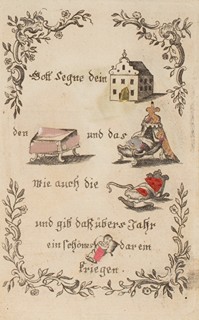 Gott Segne dein
den und das
Wie auch die
und gib daß übers Jahr
ein schöner darein
kriegen.